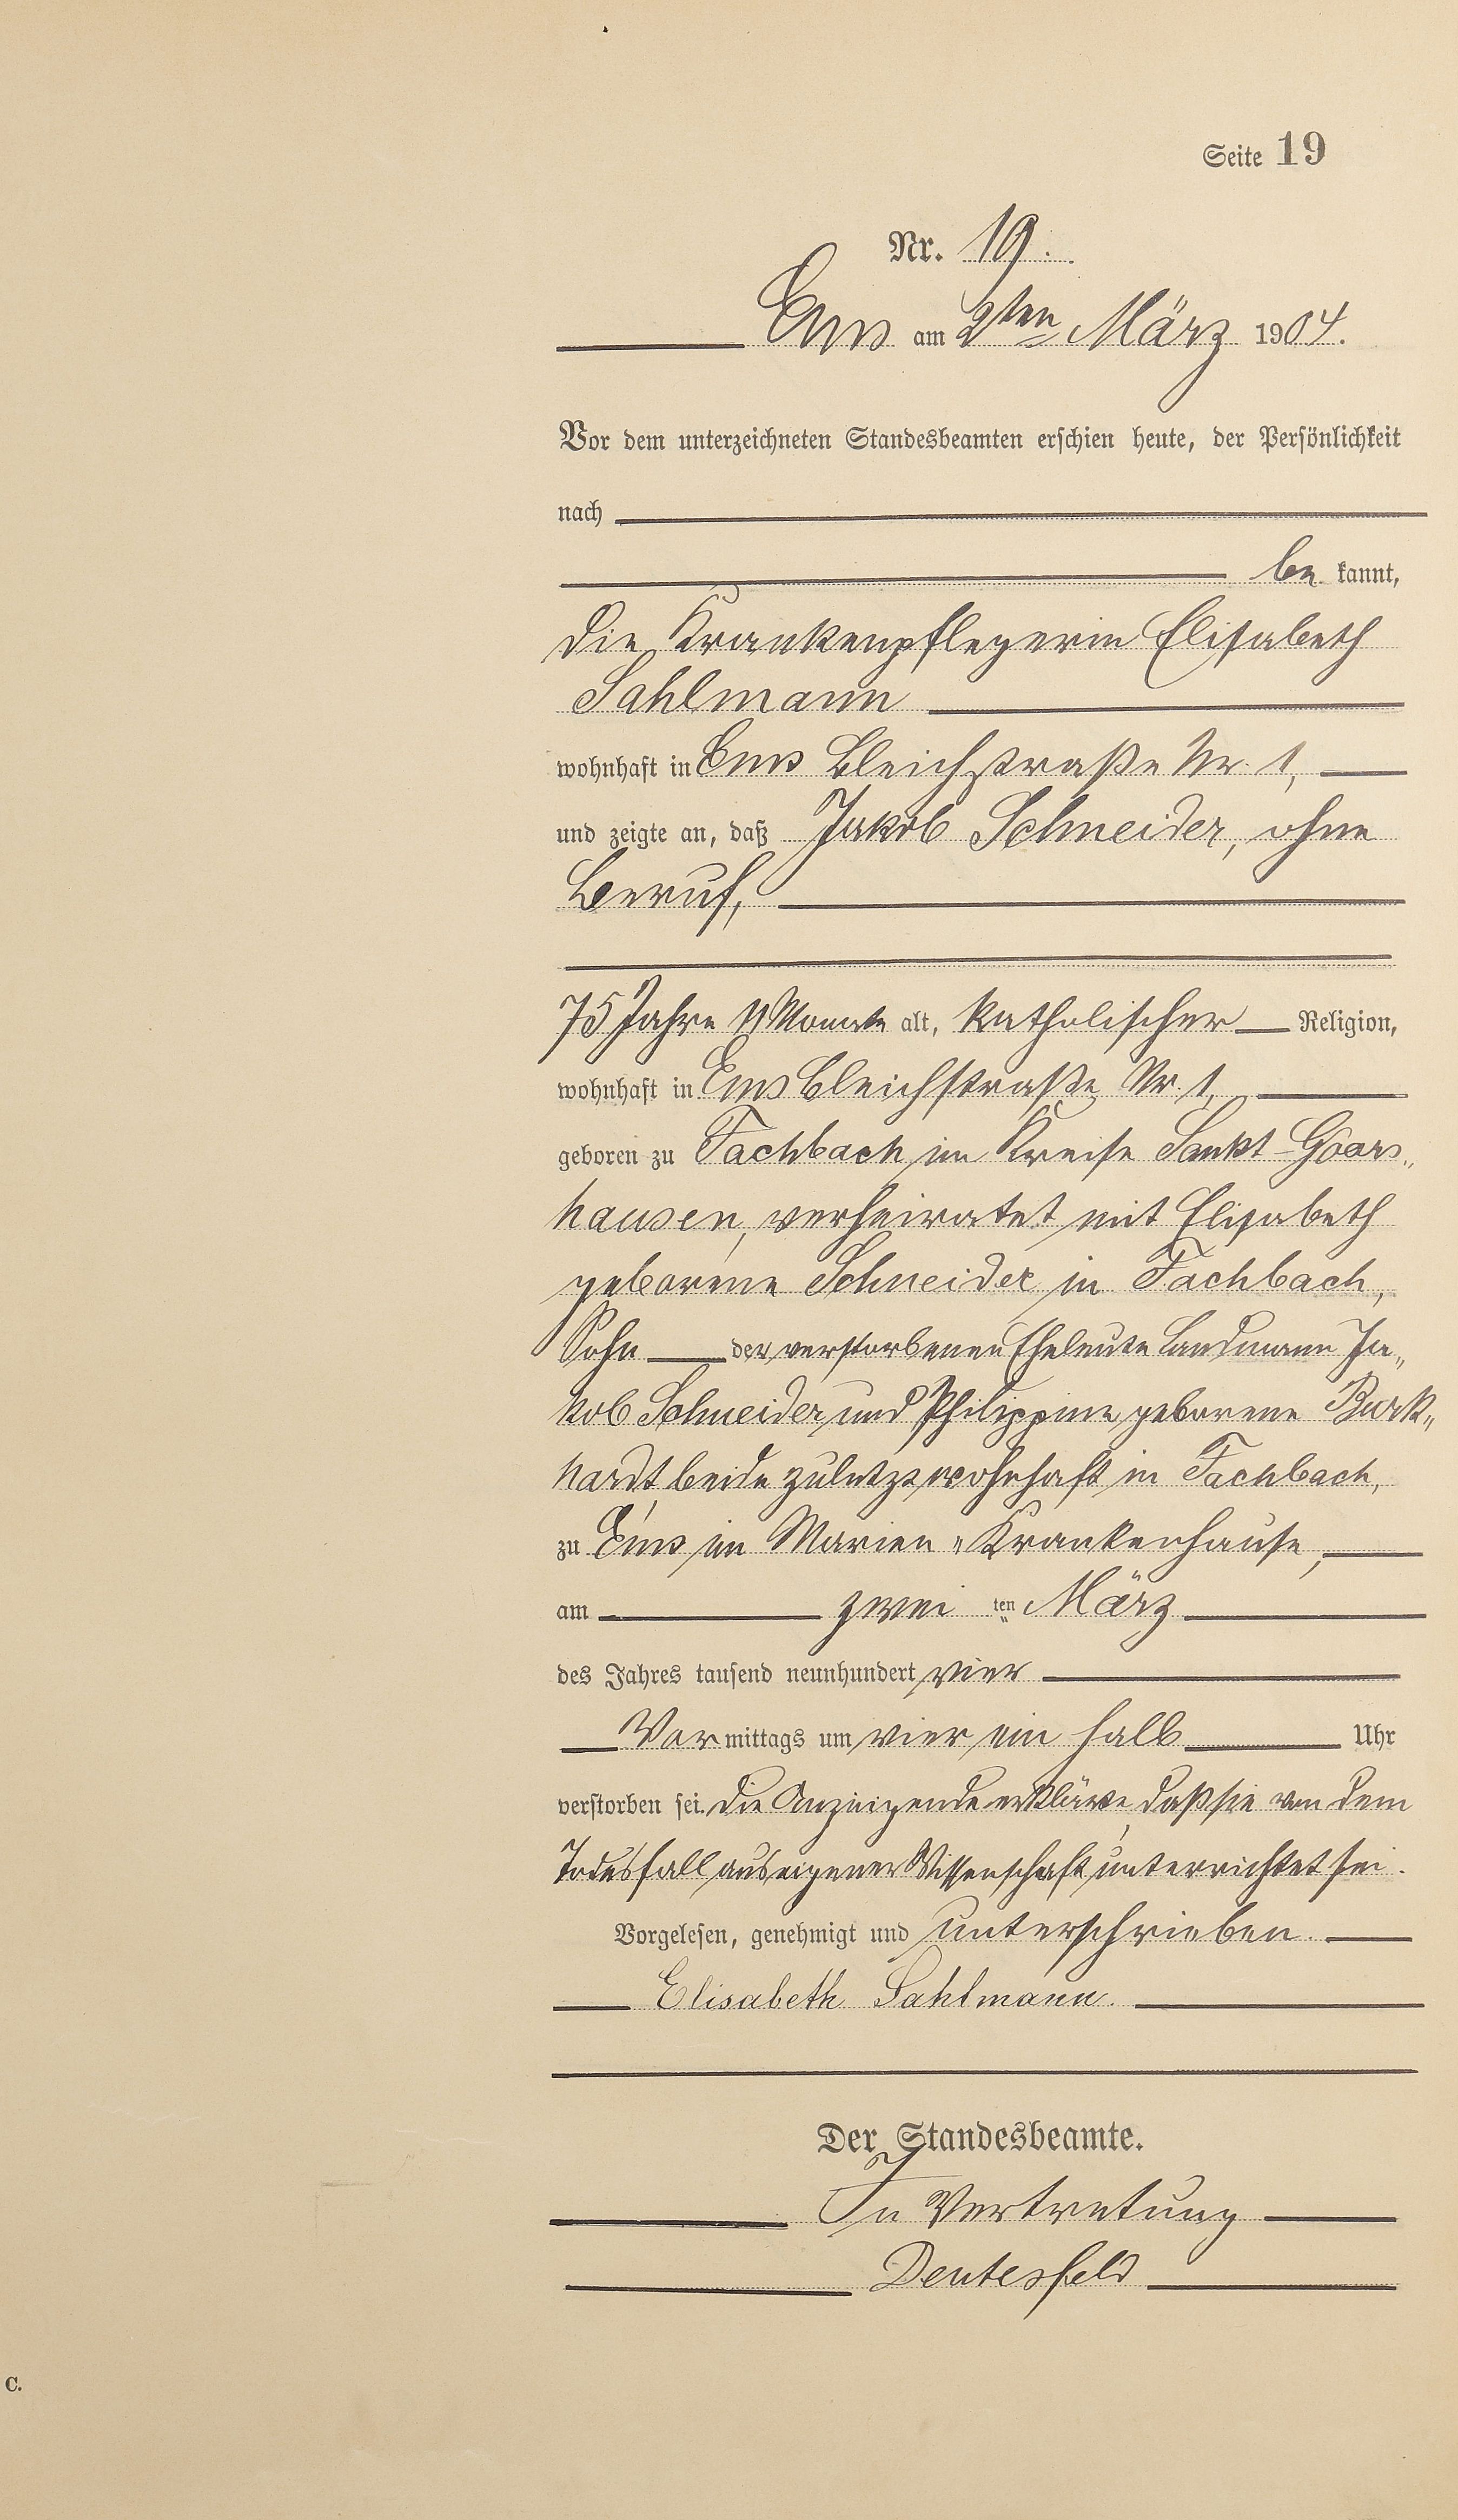 Seite 19
Nr. 19.
Ems am 2ten März 1904.
Vor dem unterzeichneten Standesbeamten erschien heute, der Persönlichkeit
nach
be kannt,
die Krankenpflegerin Elisabeth
Sahlmann
wohnhaft in Ems Bleichstraße Nr. 1,
und zeigte an, daß Jakob Schneider, ohne
Beruf,
75 Jahre 11 Monate alt, katholischer Religion,
wohnhaft in Ems Bleichstraße Nr. 1,
geboren zu Fachbach im Kreise Sankt-Goars„
hausen, verheiratet mit Elisabeth
geborene Schneider in Fachbach,
Sohn der verstorbenen Eheleute Landmann Ja„
kob Schneider und Philippine geborene Burk„
hardt, beide zuletzt wohnhaft in Fachbach,
zu Ems im Marien„Krankenhause,
am zwei ten März
des Jahres tausend neunhundert vier
Vor mittags um vier ein halb Uhr
verstorben sei. Die Anzeigende erkläre, daß sie von dem
Todesfall aus eigener Wissenschaft unterrichtet sei.
Vorgelesen, genehmigt und unterschrieben.
Elisabeth Sahlmann.
Der Standesbeamte.
In Vertretung
Deutesfeld
C.